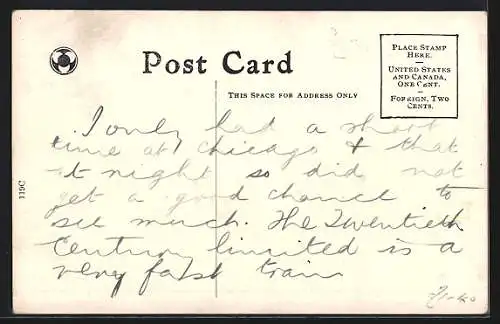 Post Card
THIS SPACE FOR ADDRESS ONLY
PLACE STAMP
HERE.
—
UNITED STATES
AND CANADA,
ONE CENT.
—
FOREIGN, TWO
CENTS.
I only had a short
time at Chicago & that
at night so did not
get a good chance to
see much. The Twentieth
Century limited is a
very fast train
119C